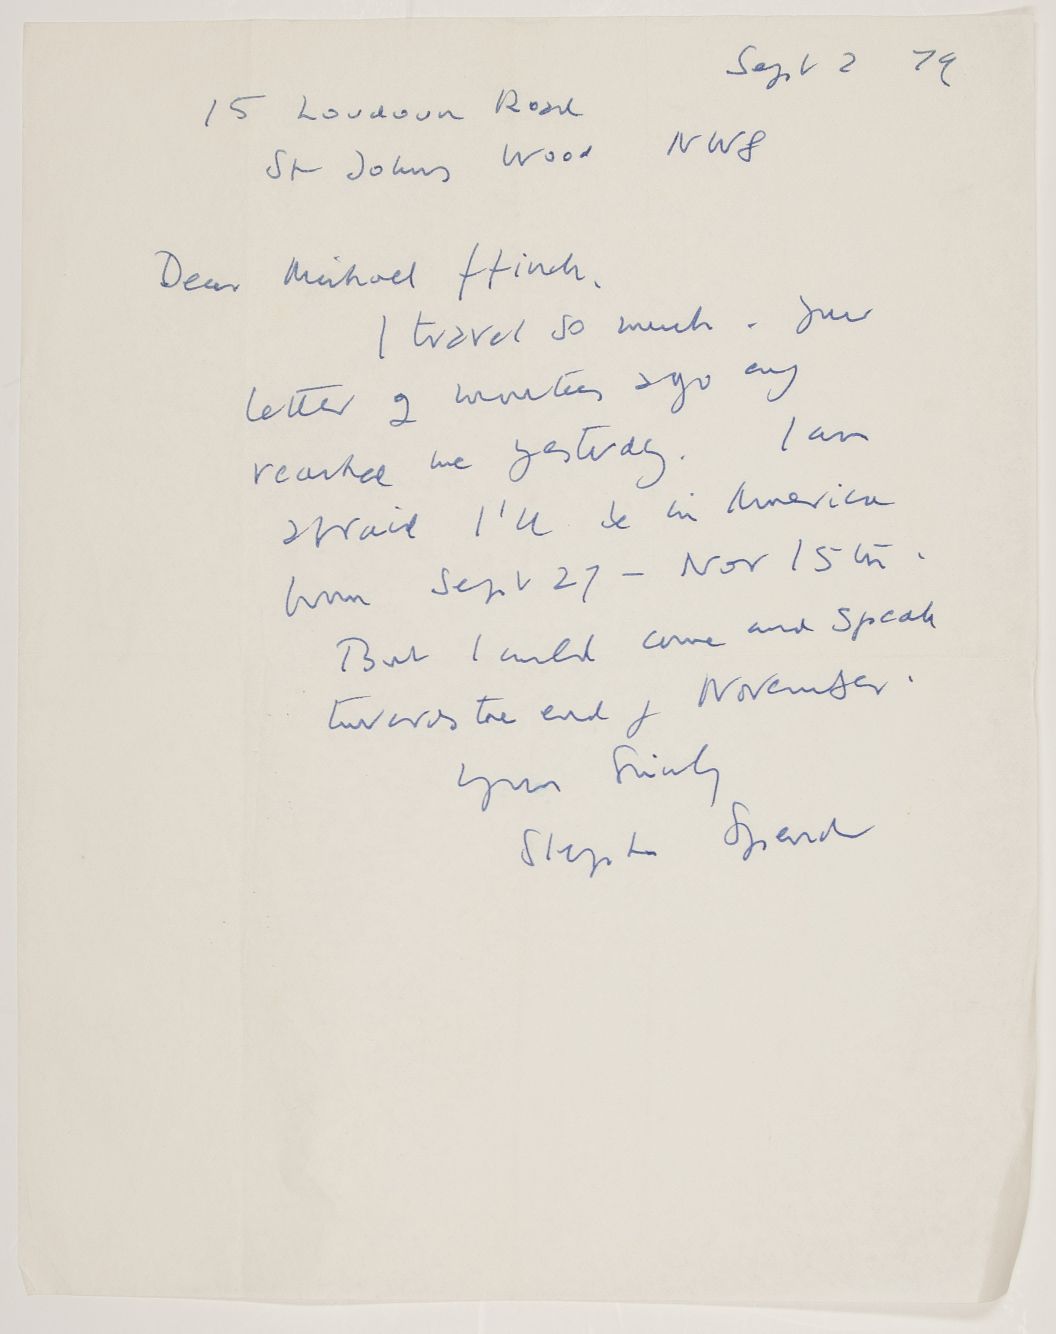 Sept 2 79
15 Loudoun Road
St Johns Wood NW8
Dear Michael ffinch.
I travel so much. Your
letter of months ago only
reached me yesterday. I am
afraid I'll be in America
from Sept 27 - Nov 15th.
But I could come and speak
towards the end of November.
Yours Sincerely
Stephen Spender